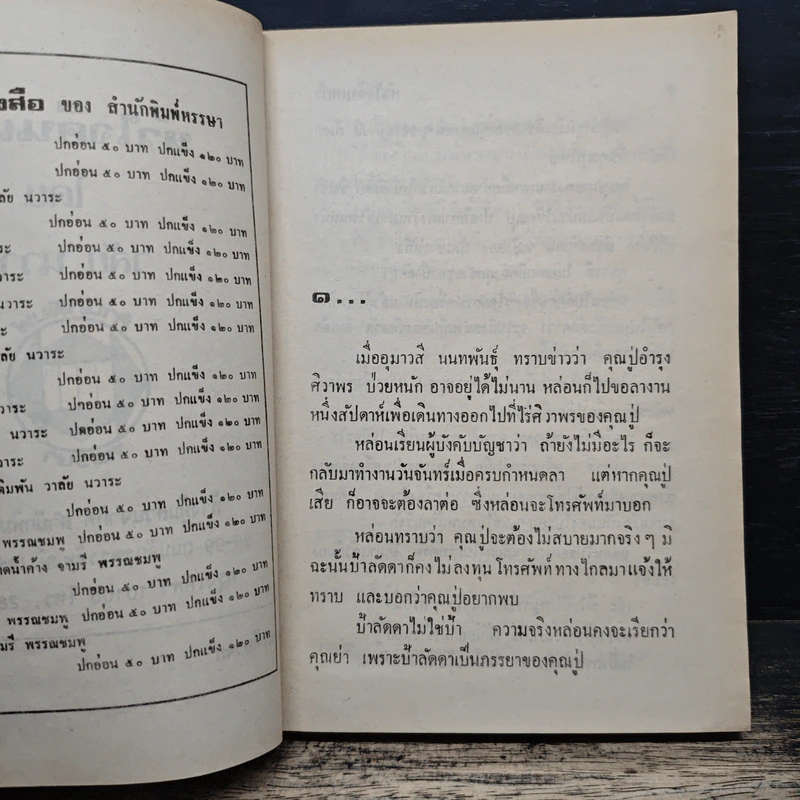 งสือ ของ สำนักพิมพ์หรรษา
ปกอ่อน ๕๐ บาท ปกแข็ง ๑๒๐ บาท
ปกอ่อน ๕๐ บาท ปกแข็ง ๑๒๐ บาท
ลัย นวาระ
ปกอ่อน ๕๐ บาท ปกแข็ง ๑๒๐ บาท
ระ ปกอ่อน ๕๐ บาท ปกแข็ง ๑๒๐ บาท
วาระ ปกอ่อน ๕๐ บาท ปกแข็ง ๑๒๐ บาท
นวาระ ปกอ่อน ๕๐ บาท ปกแข็ง ๑๒๐ บาท
ะ ปกอ่อน ๕๐ บาท ปกแข็ง ๑๒๐ บาท
ลัย นวาระ
ปกอ่อน ๕๐ บาท ปกแข็ง ๑๒๐ บาท
วาระ ปกอ่อน ๕๐ บาท ปกแข็ง ๑๒๐ บาท
นวาระ ปกอ่อน ๕๐ บาท ปกแข็ง ๑๒๐ บาท
วาระ ปกอ่อน ๕๐ บาท ปกแข็ง ๑๒๐ บาท
ดิมพัน วาลัย นวาระ
ปกอ่อน ๕๐ บาท ปกแข็ง ๑๒๐ บาท
พรรณชมพู ปกอ่อน ๕๐ บาท ปกแข็ง ๑๒๐ บาท
ดน้ำค้าง จามรี พรรณชมพู
ปกอ่อน ๕๐ บาท ปกแข็ง ๑๒๐ บาท
พรรณชมพู ปกอ่อน ๕๐ บาท ปกแข็ง ๑๒๐ บาท
มรี พรรณชมพู
ปกอ่อน ๕๐ บาท ปกแข็ง ๑๒๐ บาท
๑...
เมื่ออุมาวสี นนทพันธุ์ ทราบข่าวว่า คุณปู่อำรุง
ศิวาพร ป่วยหนัก อาจอยู่ได้ไม่นาน หล่อนก็ไปขอลางาน
หนึ่งสัปดาห์เพื่อเดินทางออกไปที่ไร่ศิวาพรของคุณปู่
หล่อนเรียนผู้บังคับบัญชาว่า ถ้ายังไม่มีอะไร ก็จะ
กลับมาทำงานวันจันทร์เมื่อครบกำหนดลา แต่หากคุณปู่
เสีย ก็อาจจะต้องลาต่อ ซึ่งหล่อนจะโทรศัพท์มาบอก
หล่อนทราบว่า คุณปู่จะต้องไม่สบายมากจริง ๆ มิ
ฉะนั้นป้าลัดดาก็คงไม่ลงทุน โทรศัพท์ทางไกลมาแจ้งให้
ทราบ และบอกว่าคุณปู่อยากพบ
ป้าลัดดาไม่ใช่ป้า ความจริงหล่อนคงจะเรียกว่า
คุณย่า เพราะป้าลัดดาเป็นภรรยาของคุณปู่